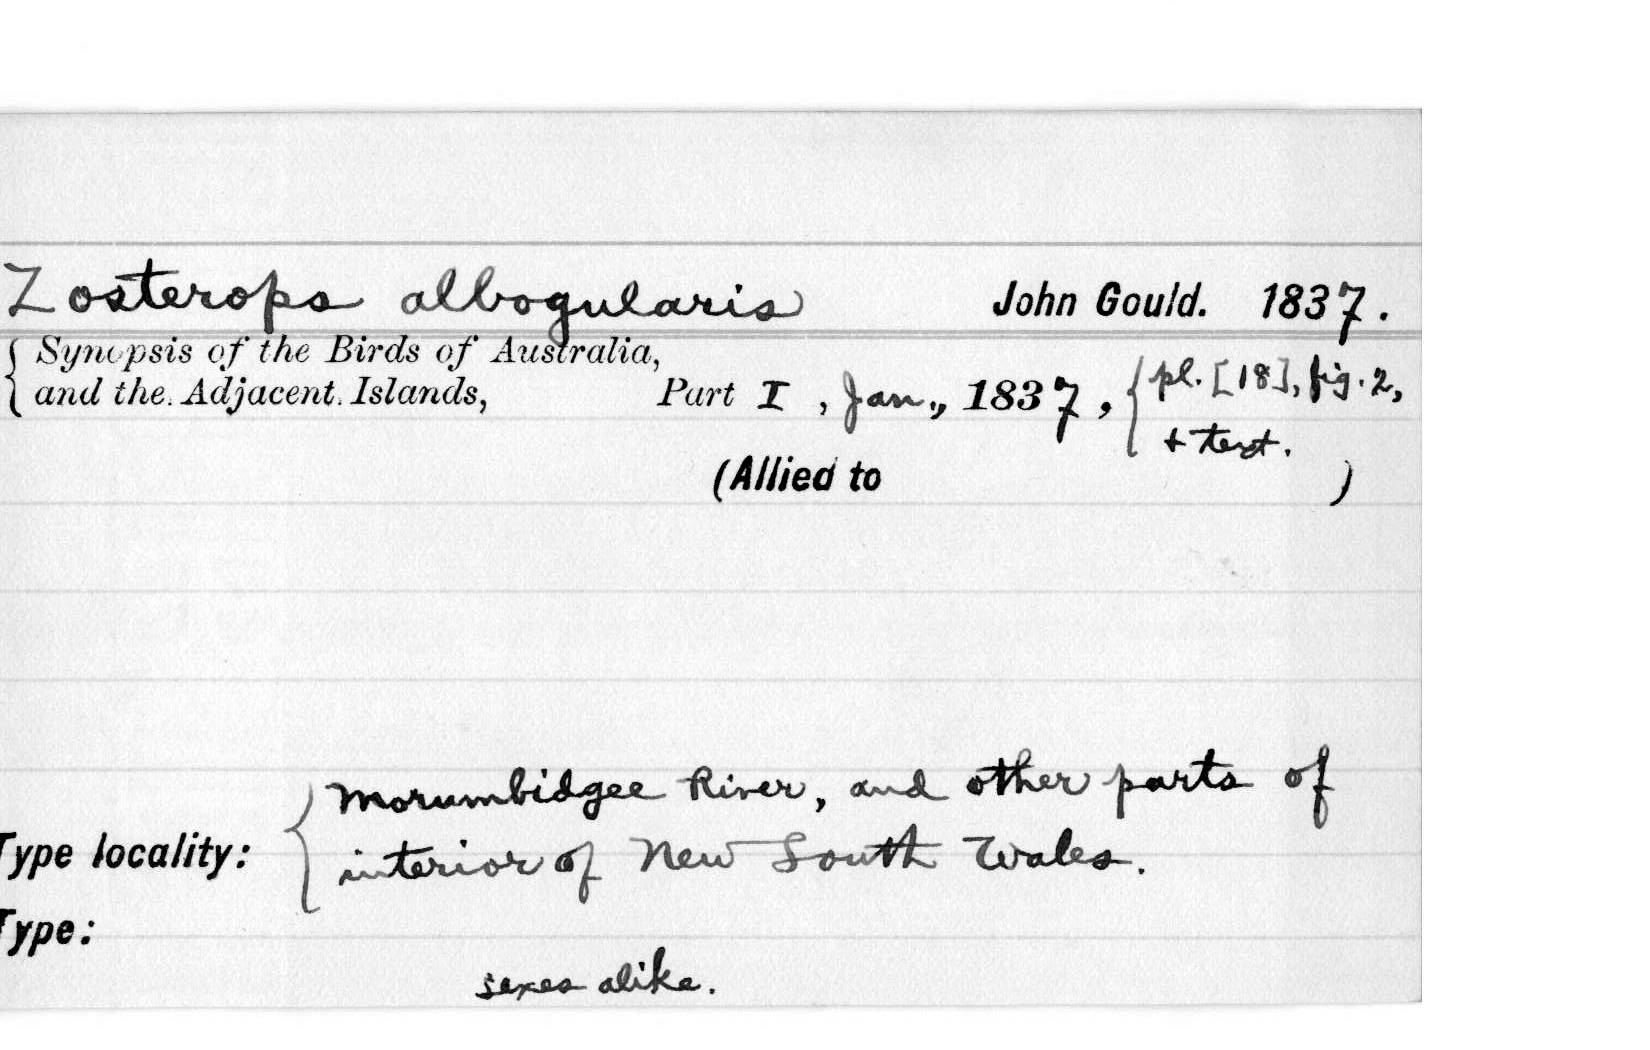 Zosterops albogularis John Gould. 1837.
Synopsis of the Birds of Australia,
and the Adjacent Islands, Part I, Jan., 1837, pl. [18], fig. 2,
+ text.
(Allied to )
Morumbidgee River, and other parts of
Type locality: interior of New South Wales.
Type:
sexes alike.